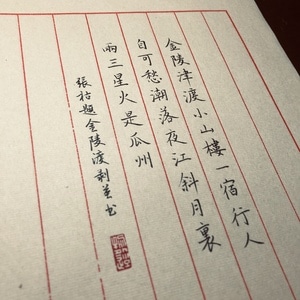 金陵津渡小山樓一宿行人
自可愁潮落夜江斜月裏
兩三星火是瓜州
張祜題金陵渡剥书